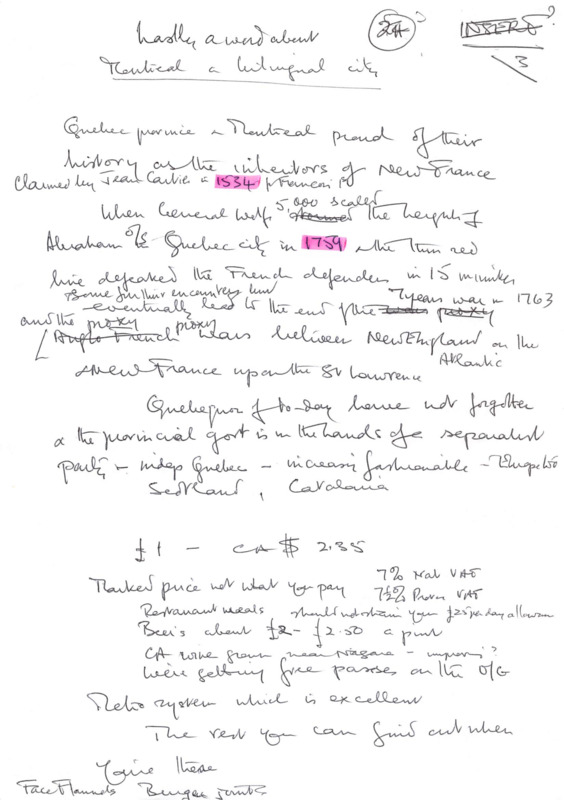 Lastly a word about
Montreal a bilingual city
24 ?
INSERT ?
3
Quebec province & Montreal proud of their
history as the inheritors of New France
Claimed by Jean Cartier in 1534 for Francois I
When General Wolfe's 5,000 scaled the heights of
Abraham o/s Quebec city in 1759 & the thin red
line defeated the French defenders in 15 minutes
Some further encounters
eventually lead to the end of the 7 years war in 1763
and the proxy wars between New England on the
Atlantic
& New France upon the St Lawrence
of to-day have not forgotten
& the provincial govt is in the hands of a separatist
party – indep Quebec – increasing fashionable – Europe too
Scotland, Catalania
£1 – CA $ 2.35
Marked price not what you pay 7% Nat VAT
7½% Provin VAT
Restaurant meals should not strain your £25 per day allowance
Beer's about £2 – £2.50 a pint
CA wine grown near Niagara – improving?
We're getting free passes on the O/G
Metro system which is excellent
The rest you can find out when
You're there
Face Flannels Burger joints